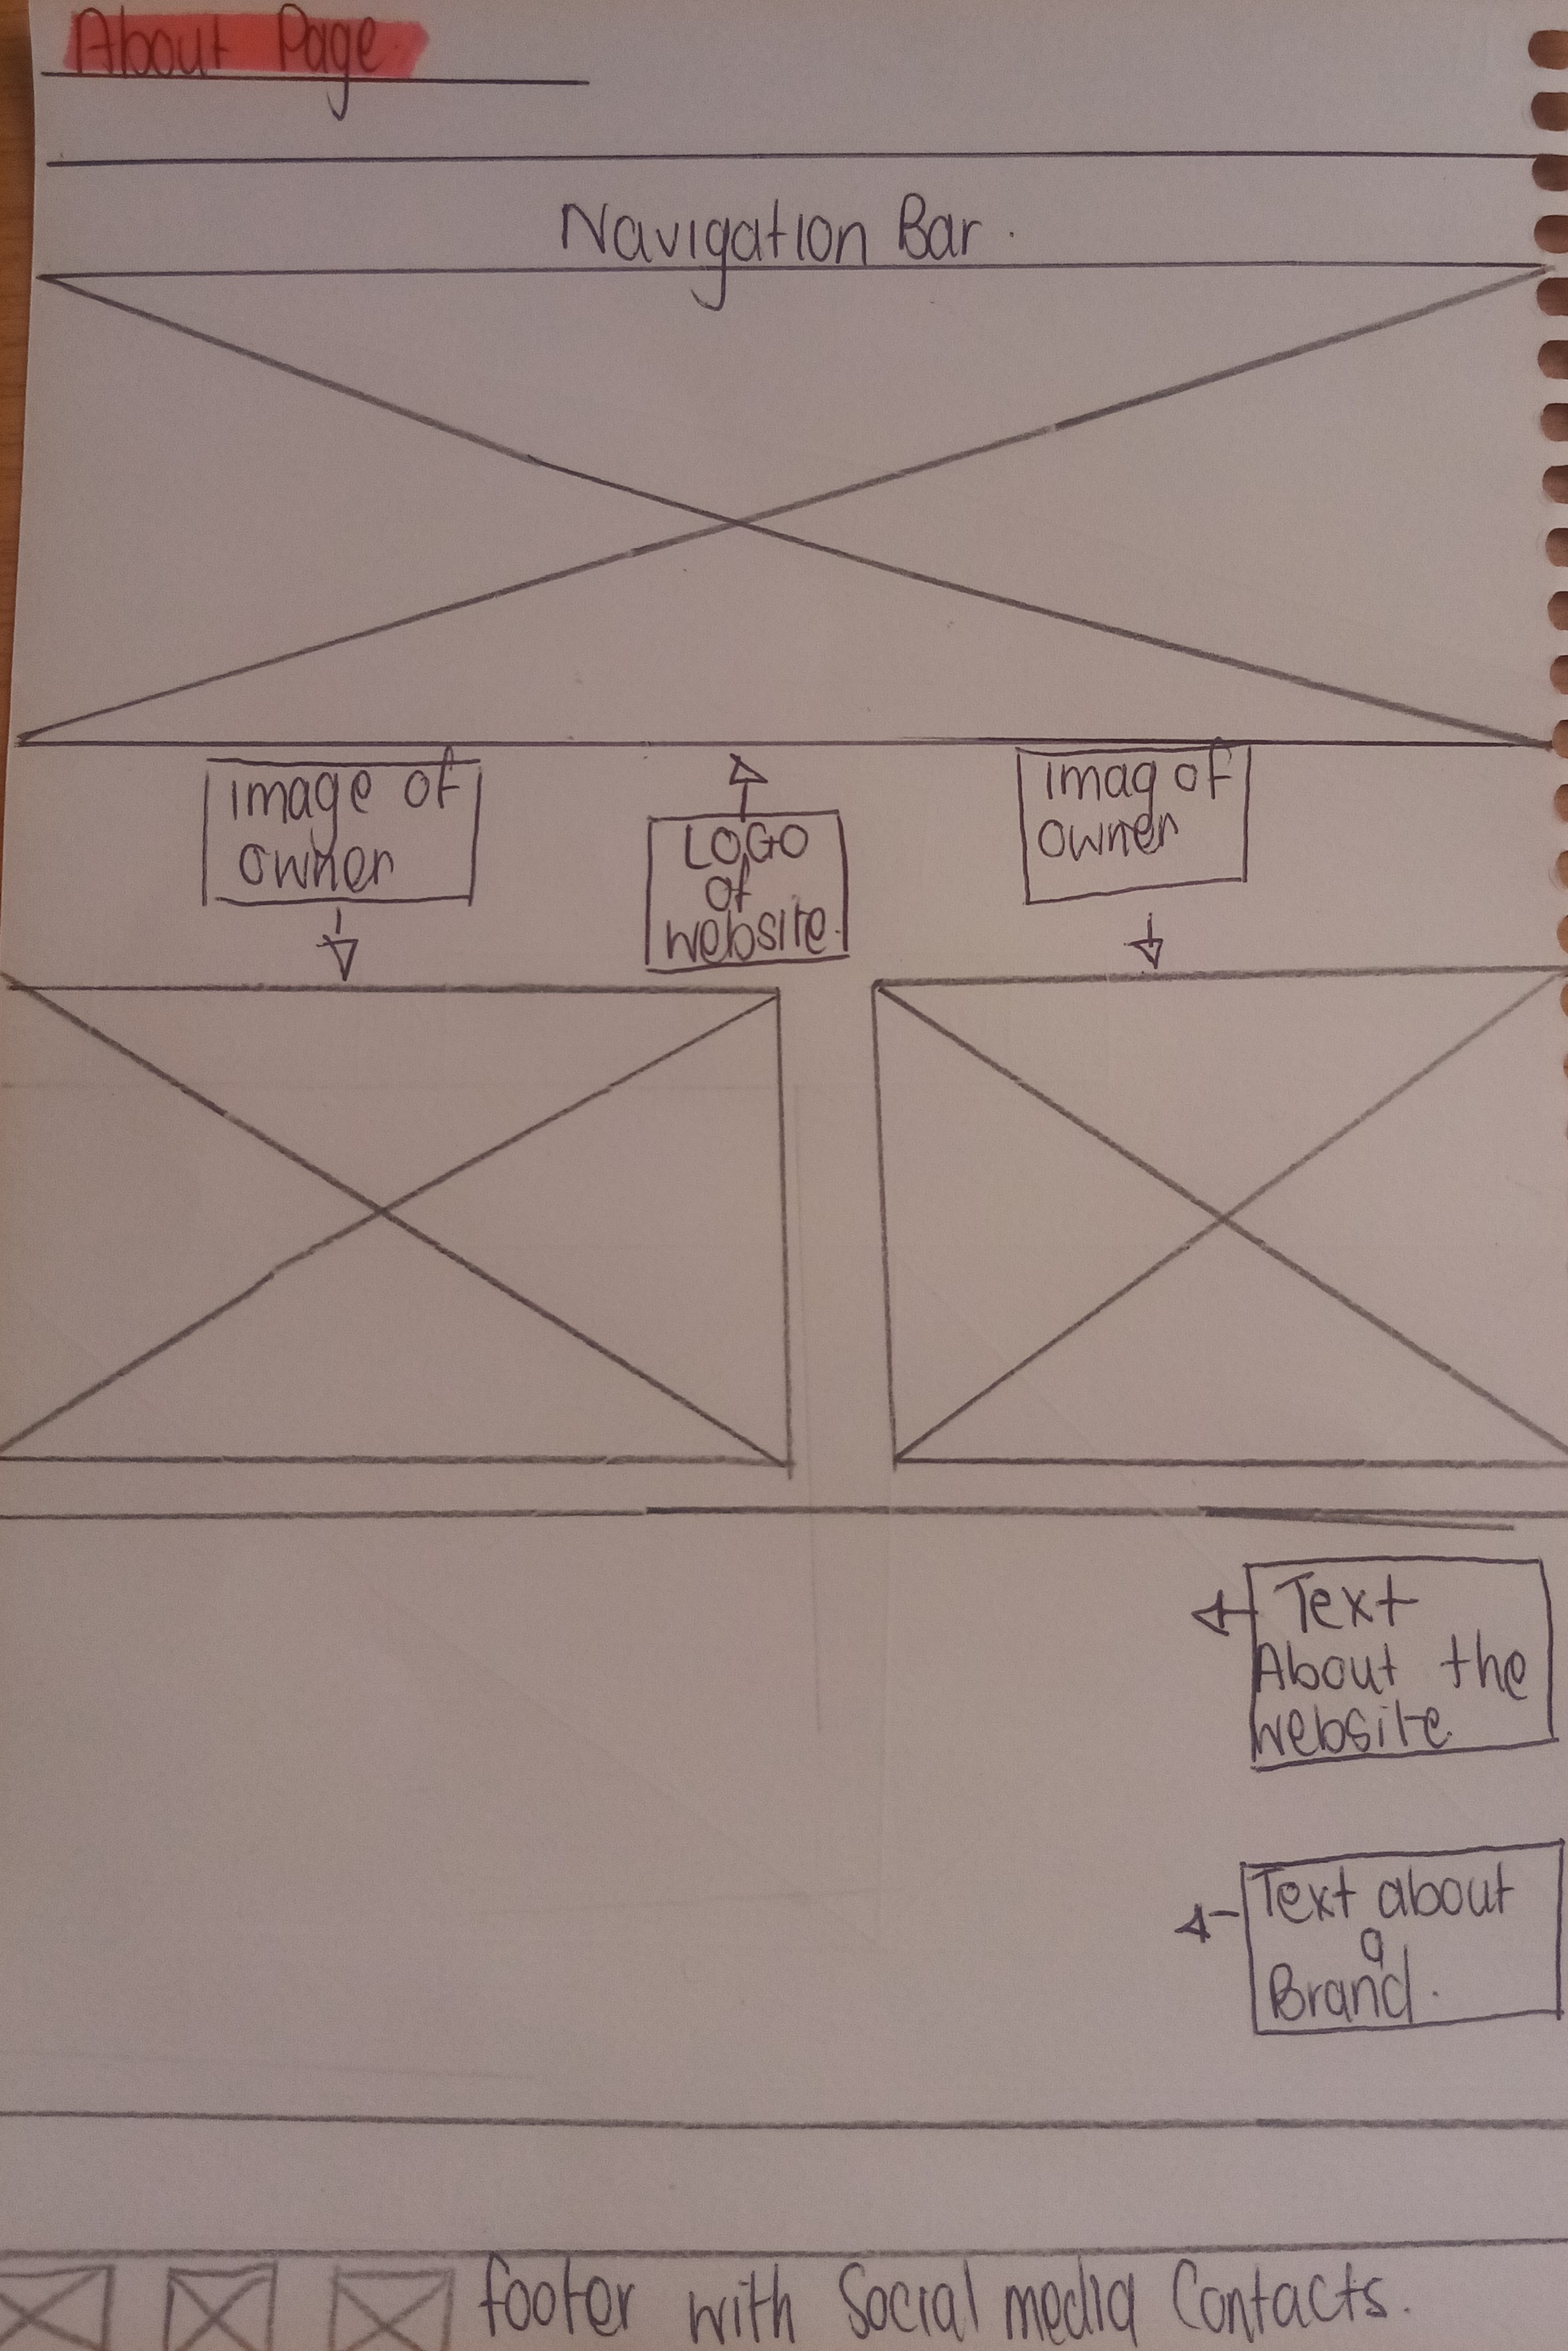 About Page.
Navigation Bar.
image of
owner
LOGO
of
website.
imag of
owner
Text
About the
website.
Text about
a
Brand.
footer with Social media Contacts.